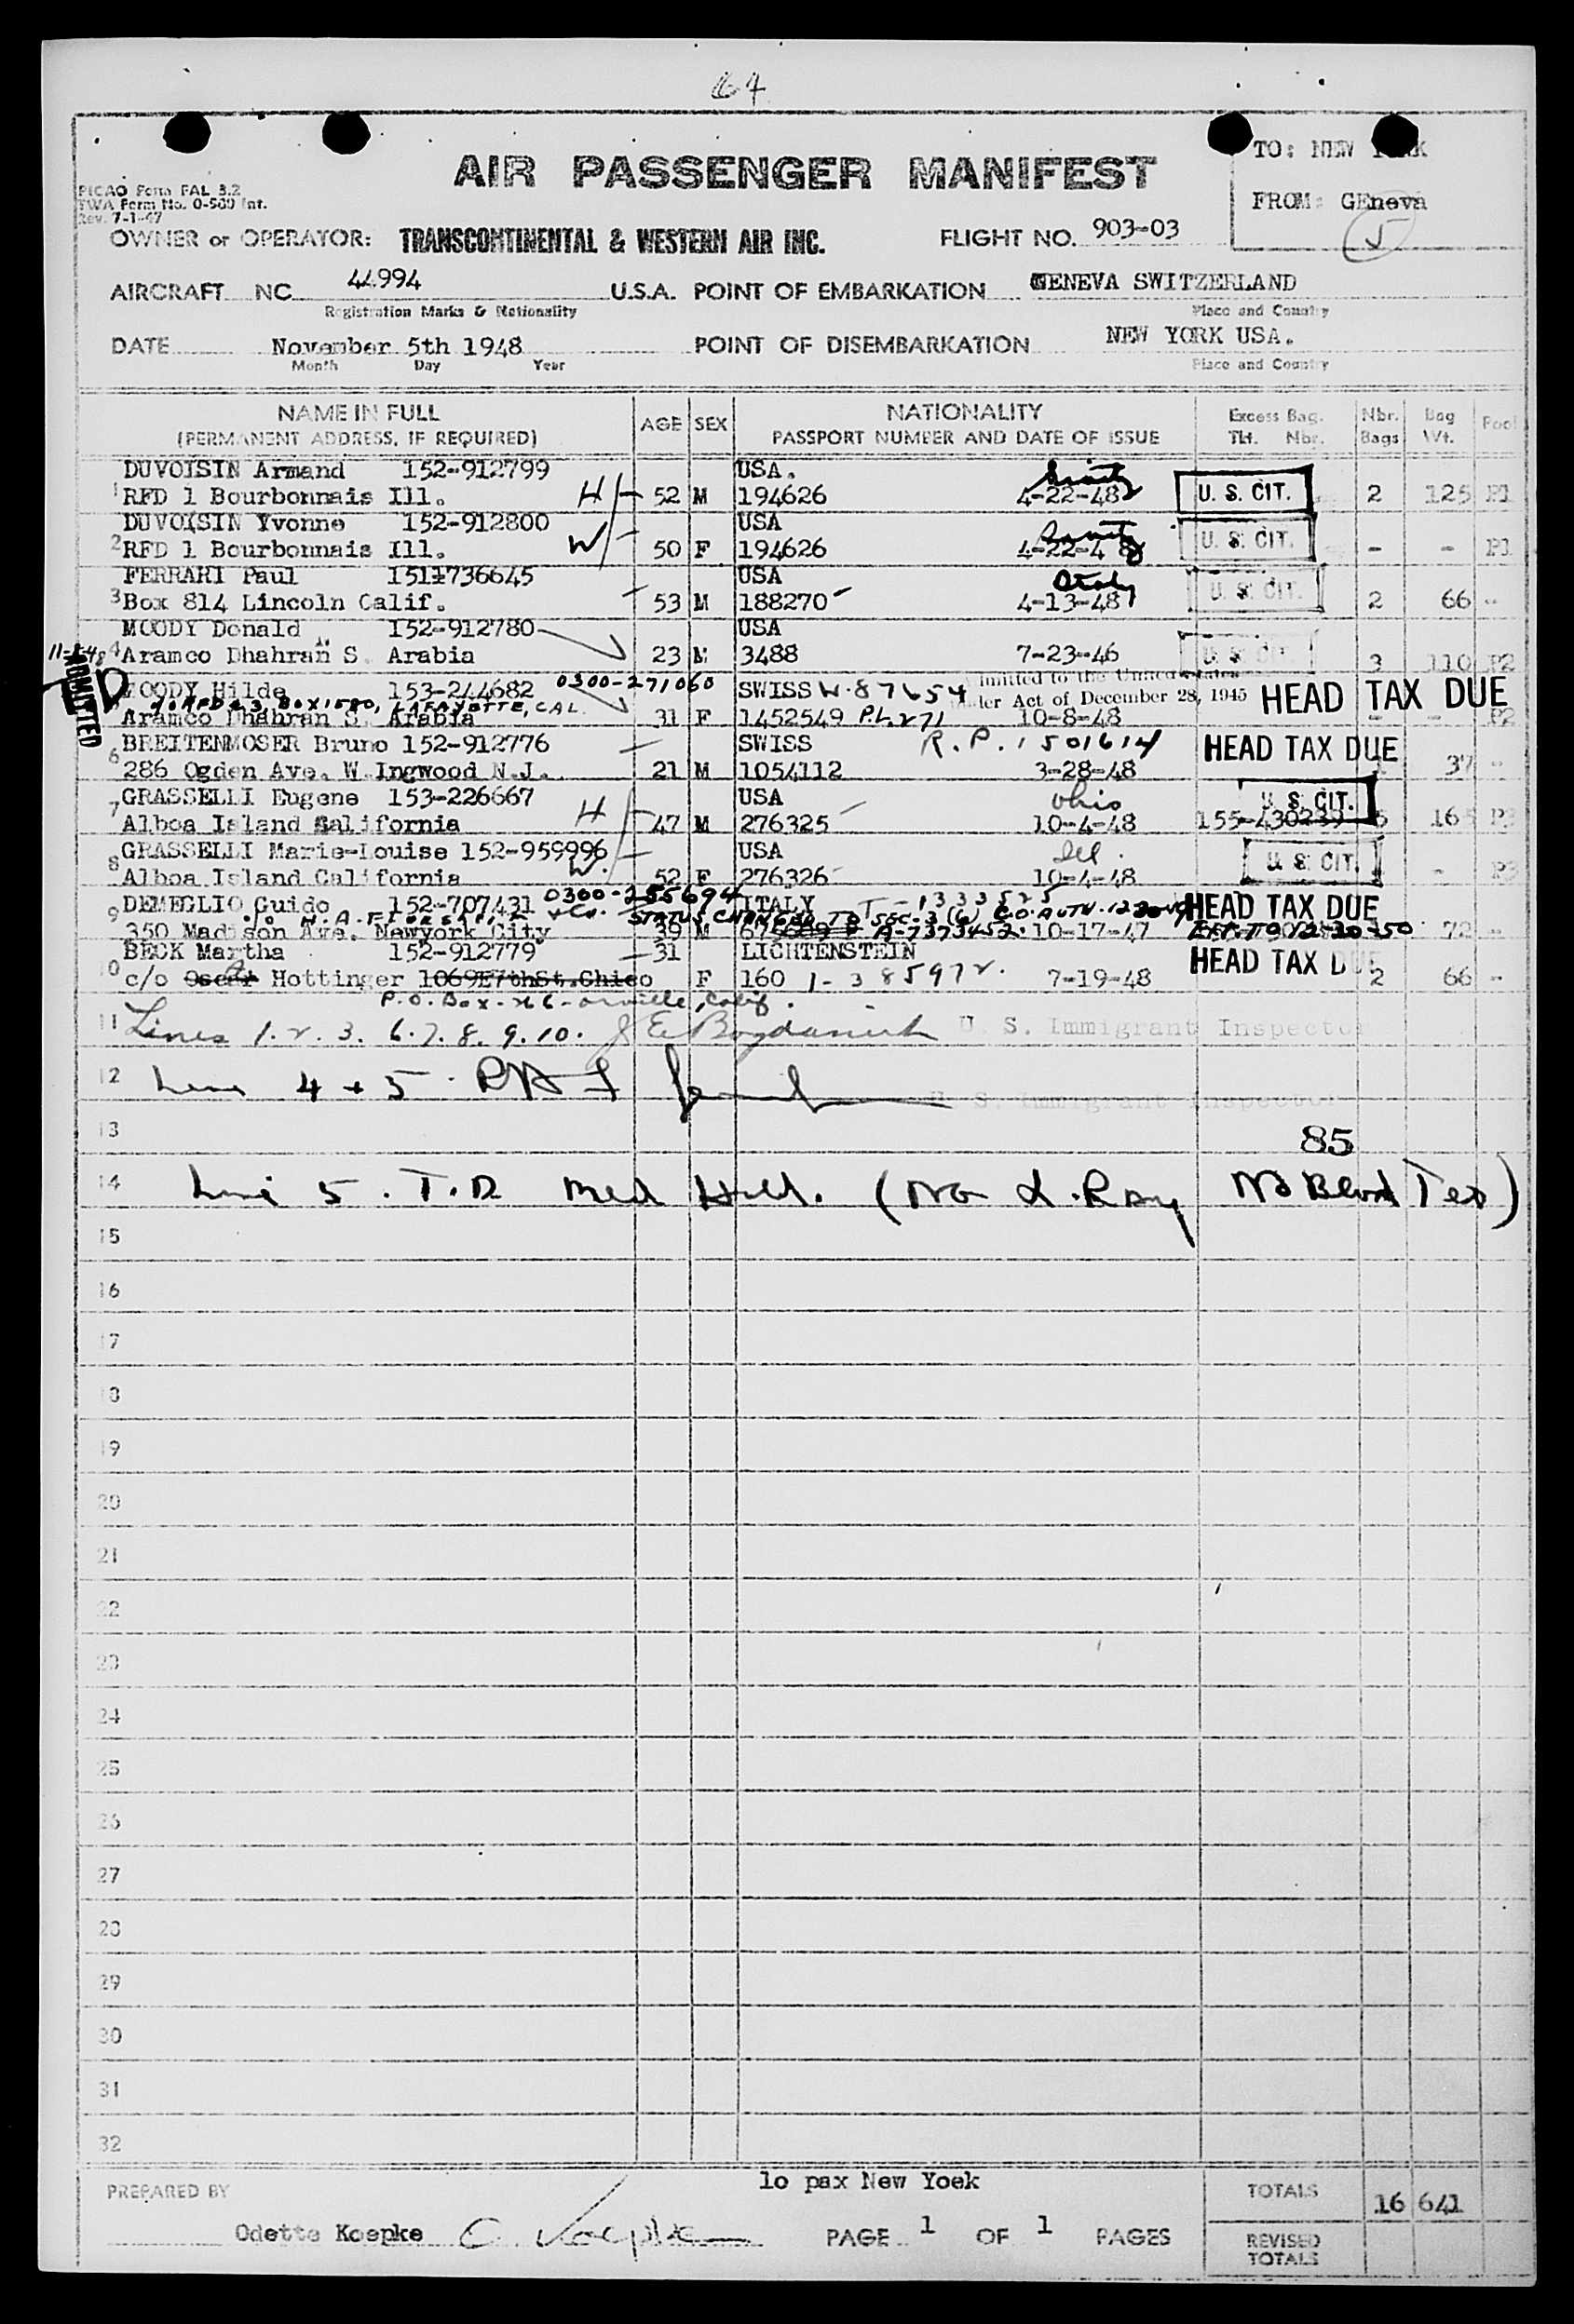 64
AIR PASSENGER MANIFEST
TO: NEW
FROM: GEneva
5
PICAO Form FAL 3.2
TWA Form No. 0-500 Int.
Rev. 7-1-47
OWNER or OPERATOR: TRANSCONTINENTAL & WESTERN AIR INC. FLIGHT NO. 903-03
AIRCRAFT NC 44994 U.S.A. POINT OF EMBARKATION GENEVA SWITZERLAND
Registration Marks & Nationality Place and Country
DATE November 5th 1948 POINT OF DISEMBARKATION NEW YORK USA.
Month Day Year Place and Country
NAME IN FULL AGE SEX NATIONALITY Excess Bag. Nbr. Bag Pool
(PERMANENT ADDRESS, IF REQUIRED) PASSPORT NUMBER AND DATE OF ISSUE Tkt. Nbr. Bags Wt.
DUVOISIN Armand 152-912799 USA.
1 RFD 1 Bourbonnais Ill. H 52 M 194626 4-22-48 U. S. CIT. 2 125 P1
DUVOISIN Yvonne 152-912800 USA
2 RFD 1 Bourbonnais Ill. W 50 F 194626 4-22-48 U. S. CIT. - - P1
FERRARI Paul 1511736645 USA Italy
3 Box 814 Lincoln Calif. 53 M 188270 4-13-48 U. S. CIT. 2 66 --
MOODY Donald 152-912780 USA
11-5-48 4 Aramco Dhahran S. Arabia 23 M 3488 7-23-46 U. S. CIT. 3 110 P2
ADMITTED MOODY Hilde 153-244682 0300-271060 SWISS W-87654 Admitted to the United States
RFD #3, BOX 1580, LAFAYETTE, CAL. under Act of December 28, 1945 HEAD TAX DUE
Aramco Dhahran S. Arabia 31 F 1452549 P.L. 271 10-8-48 - - P2
BREITENMOSER Bruno 152-912776 SWISS R.P. 1501614 HEAD TAX DUE
6 286 Ogden Ave. W.Ingwood N.J. 21 M 1054112 3-28-48 1 37 --
GRASSELLI Eugene 153-226667 USA Ohio U. S. CIT.
7 Alboa Island Salifornia H 47 M 276325 10-4-48 155-430239 165 P3
GRASSELLI Marie-Louise 152-959996 USA Ill.
8 Alboa Island California W. 52 F 276326 10-4-48 U. S. CIT. - P3
DEMEGLIO Guido 152-707431 0300-255694 ITALY T-1333525 HEAD TAX DUE
STATUS CHANGED TO SEC. 3(6) C.O. AUTH.
9 350 Madison Ave. Newyork City 39 M A-7373452. 10-17-47 EXT. TO 12-30-50 72 --
BECK Martha 152-912779 31 LICHTENSTEIN HEAD TAX DUE
10 c/o Oscar Hottinger 1069E7thSt.Chico F 160 1-385972. 7-19-48 2 66 --
P.O. Box-
11 Lines 1.2.3. 6.7.8.9.10. U. S. Immigrant Inspector
12 Line 4 + 5 U. S. Immigrant Inspector
13 85
14 Line 5. T.D. Med Held. (No X.Ray No Blood Test)
15
16
17
18
19
20
21
22
23
24
25
26
27
28
29
30
31
32
PREPARED BY 1o pax New Yoek TOTALS 16 641
Odette Koepke O. Koepke PAGE 1 OF 1 PAGES REVISED TOTALS